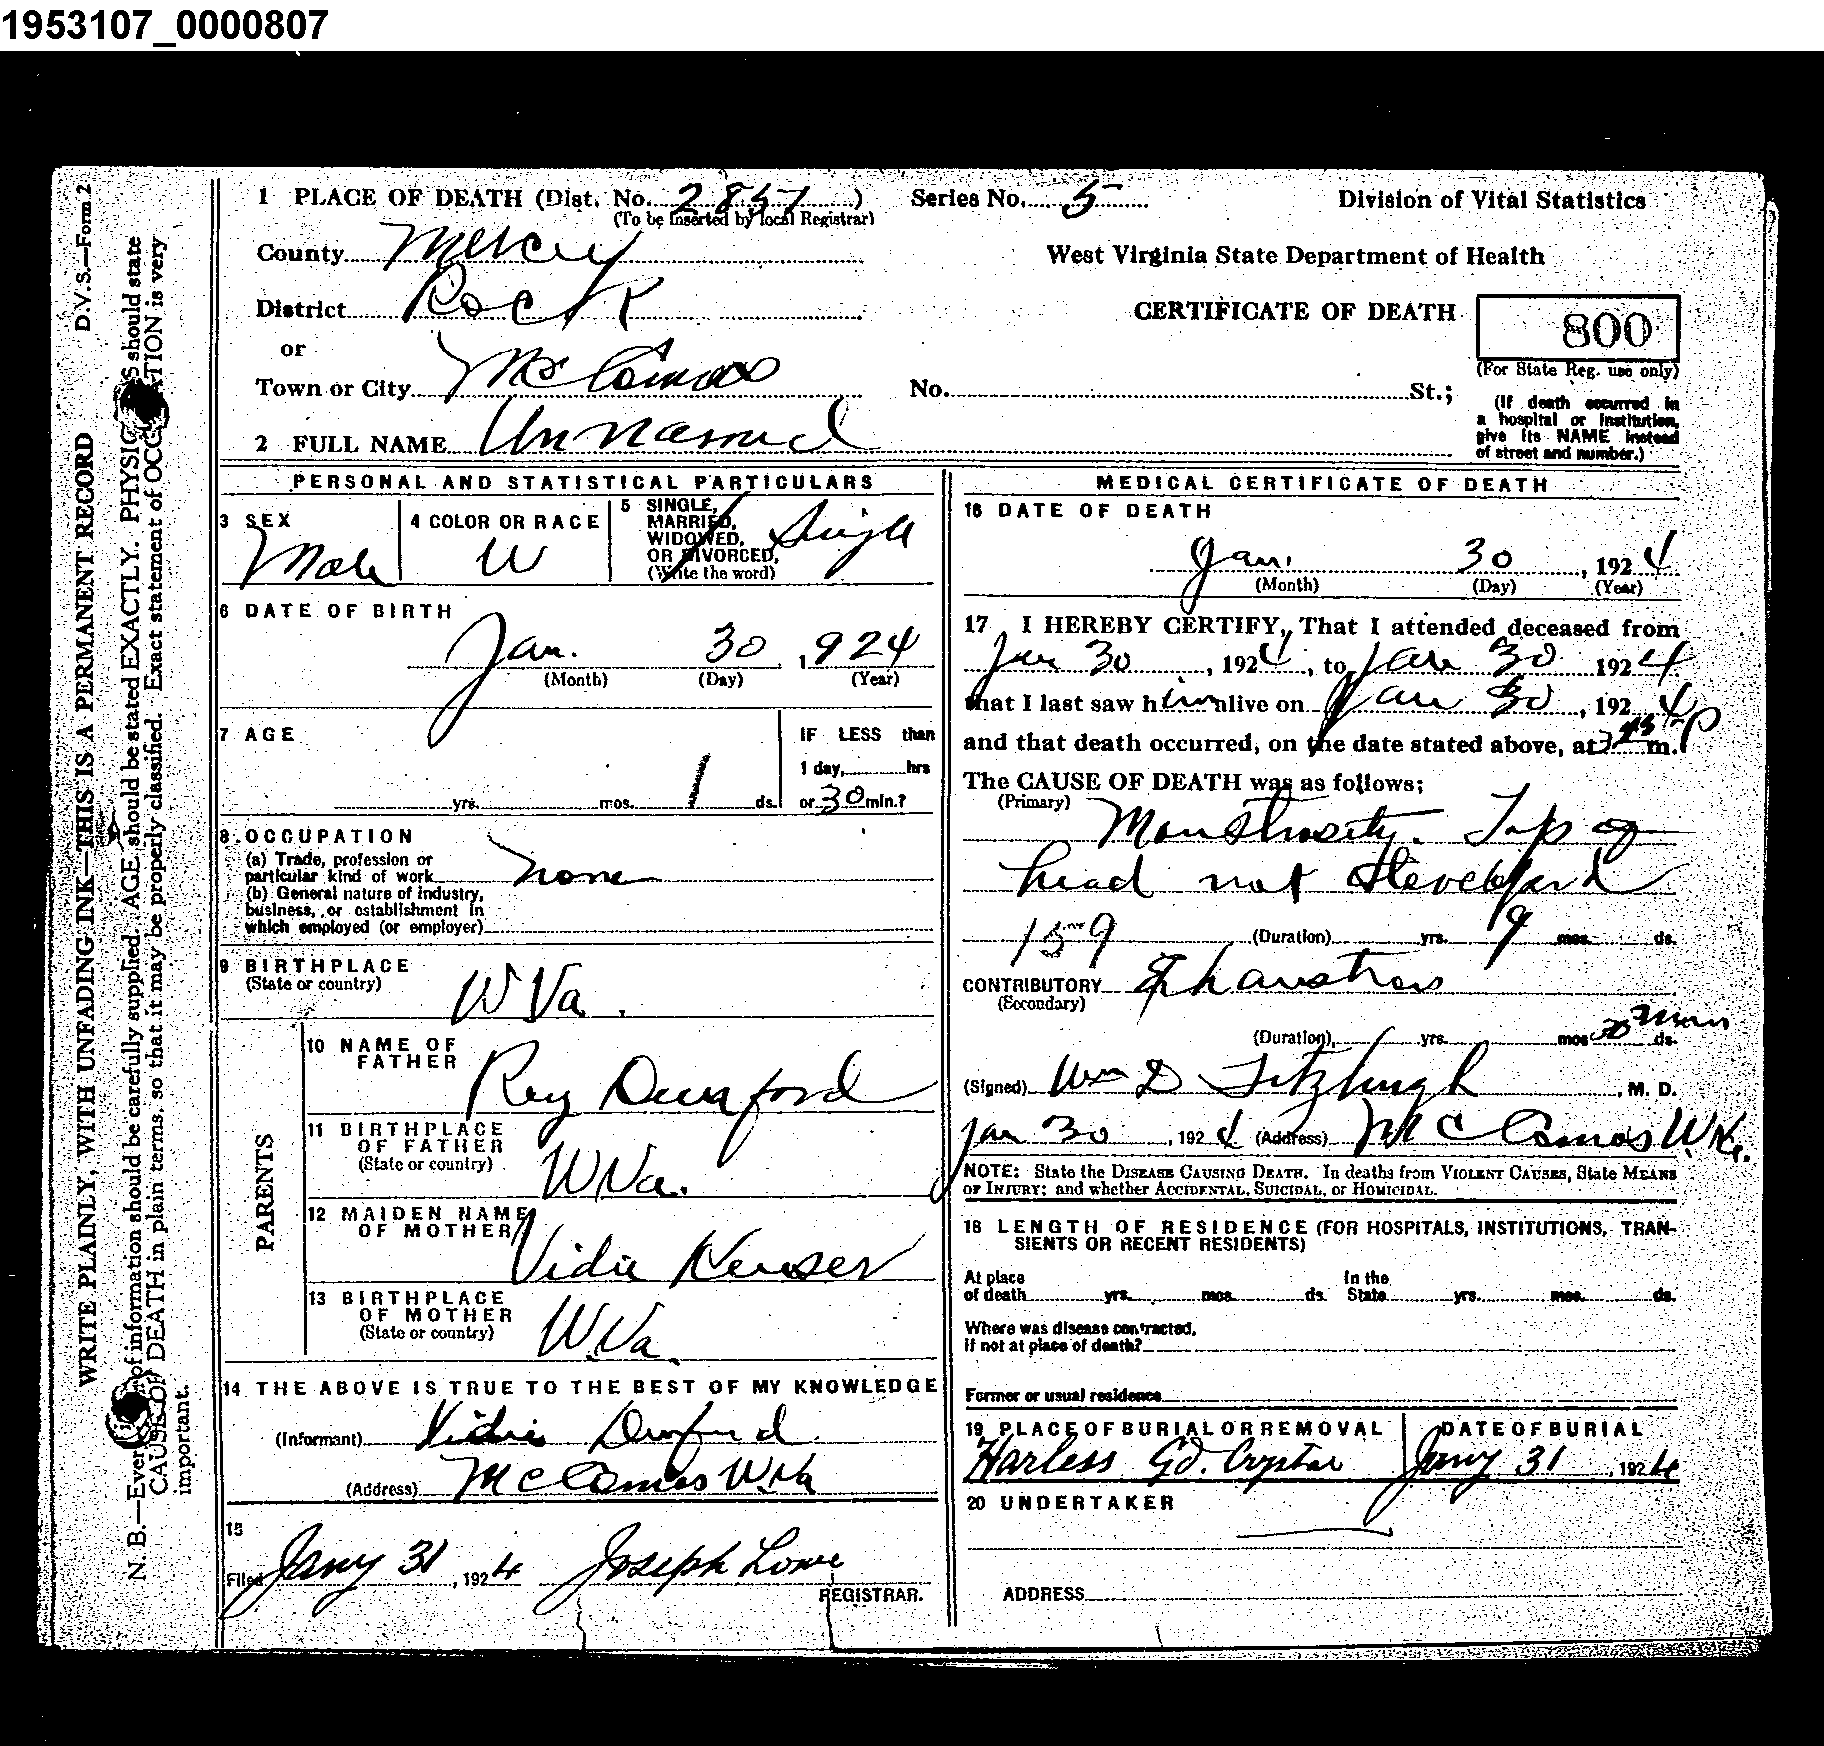 1953107_0000807
D.V.S.—Form 2
WRITE PLAINLY, WITH UNFADING INK—THIS IS A PERMANENT RECORD
N. B.—Every of information should be carefully supplied. AGE should be stated EXACTLY. PHYSIC S should state
CAUSE OF DEATH in plain terms, so that it may be properly classified. Exact statement of OCC ATION is very
important.
1 PLACE OF DEATH (Dist. No. 2857 ) Series No. 5 Division of Vital Statistics
(To be inserted by local Registrar)
County Mercer West Virginia State Department of Health
District Rock CERTIFICATE OF DEATH 800
or
(For State Reg. use only)
Town or City McComas No. St.;
(If death occurred in
a hospital or institution,
give its NAME instead
of street and number.)
2 FULL NAME Unnamed
PERSONAL AND STATISTICAL PARTICULARS
3 SEX
Male
4 COLOR OR RACE
W
5 SINGLE,
MARRIED,
WIDOWED,
OR DIVORCED,
(Write the word)
Single
6 DATE OF BIRTH
Jan. 30 , 924
(Month) (Day) (Year)
7 AGE
IF LESS than
1 day, hrs
yrs. mos. 1 ds. or 30 min.?
8 OCCUPATION
(a) Trade, profession or
particular kind of work none
(b) General nature of industry,
business, or establishment in
which employed (or employer)
9 BIRTHPLACE
(State or country)
W Va.
PARENTS
10 NAME OF
FATHER
Rey Dunford
11 BIRTHPLACE
OF FATHER
(State or country)
W.Va.
12 MAIDEN NAME
OF MOTHER
Vidie
13 BIRTHPLACE
OF MOTHER
(State or country)
W.Va.
14 THE ABOVE IS TRUE TO THE BEST OF MY KNOWLEDGE
(Informant) Vidie Dunford
(Address) McComas W.Va
15
Filed Jany 31, 1924 Joseph Lowe
REGISTRAR.
MEDICAL CERTIFICATE OF DEATH
16 DATE OF DEATH
Jan. 30 , 1924
(Month) (Day) (Year)
17 I HEREBY CERTIFY, That I attended deceased from
Jan 30 , 1924, to Jan 30 1924
that I last saw him alive on Jan 30, 1924
and that death occurred, on the date stated above, at m. P
The CAUSE OF DEATH was as follows:
(Primary)
Monstrosity. Top of
head not developed
159 (Duration) yrs. 9 mos. ds.
CONTRIBUTORY Exhaustion
(Secondary)
(Duration) yrs. mos 30 min ds.
(Signed) Wm D Fitzhugh , M. D.
Jan 30 , 1924 (Address) McComas W.Va.
NOTE: State the DISEASE CAUSING DEATH. In deaths from VIOLENT CAUSES, State MEANS
OF INJURY; and whether ACCIDENTAL, SUICIDAL, or HOMICIDAL.
18 LENGTH OF RESIDENCE (FOR HOSPITALS, INSTITUTIONS, TRAN-
SIENTS OR RECENT RESIDENTS)
At place In the
of death yrs. mos. ds. State yrs. mos. ds.
Where was disease contracted,
if not at place of death?
Former or usual residence
19 PLACE OF BURIAL OR REMOVAL DATE OF BURIAL
Harless Gd. Crystal Jany 31 , 1924
20 UNDERTAKER
ADDRESS